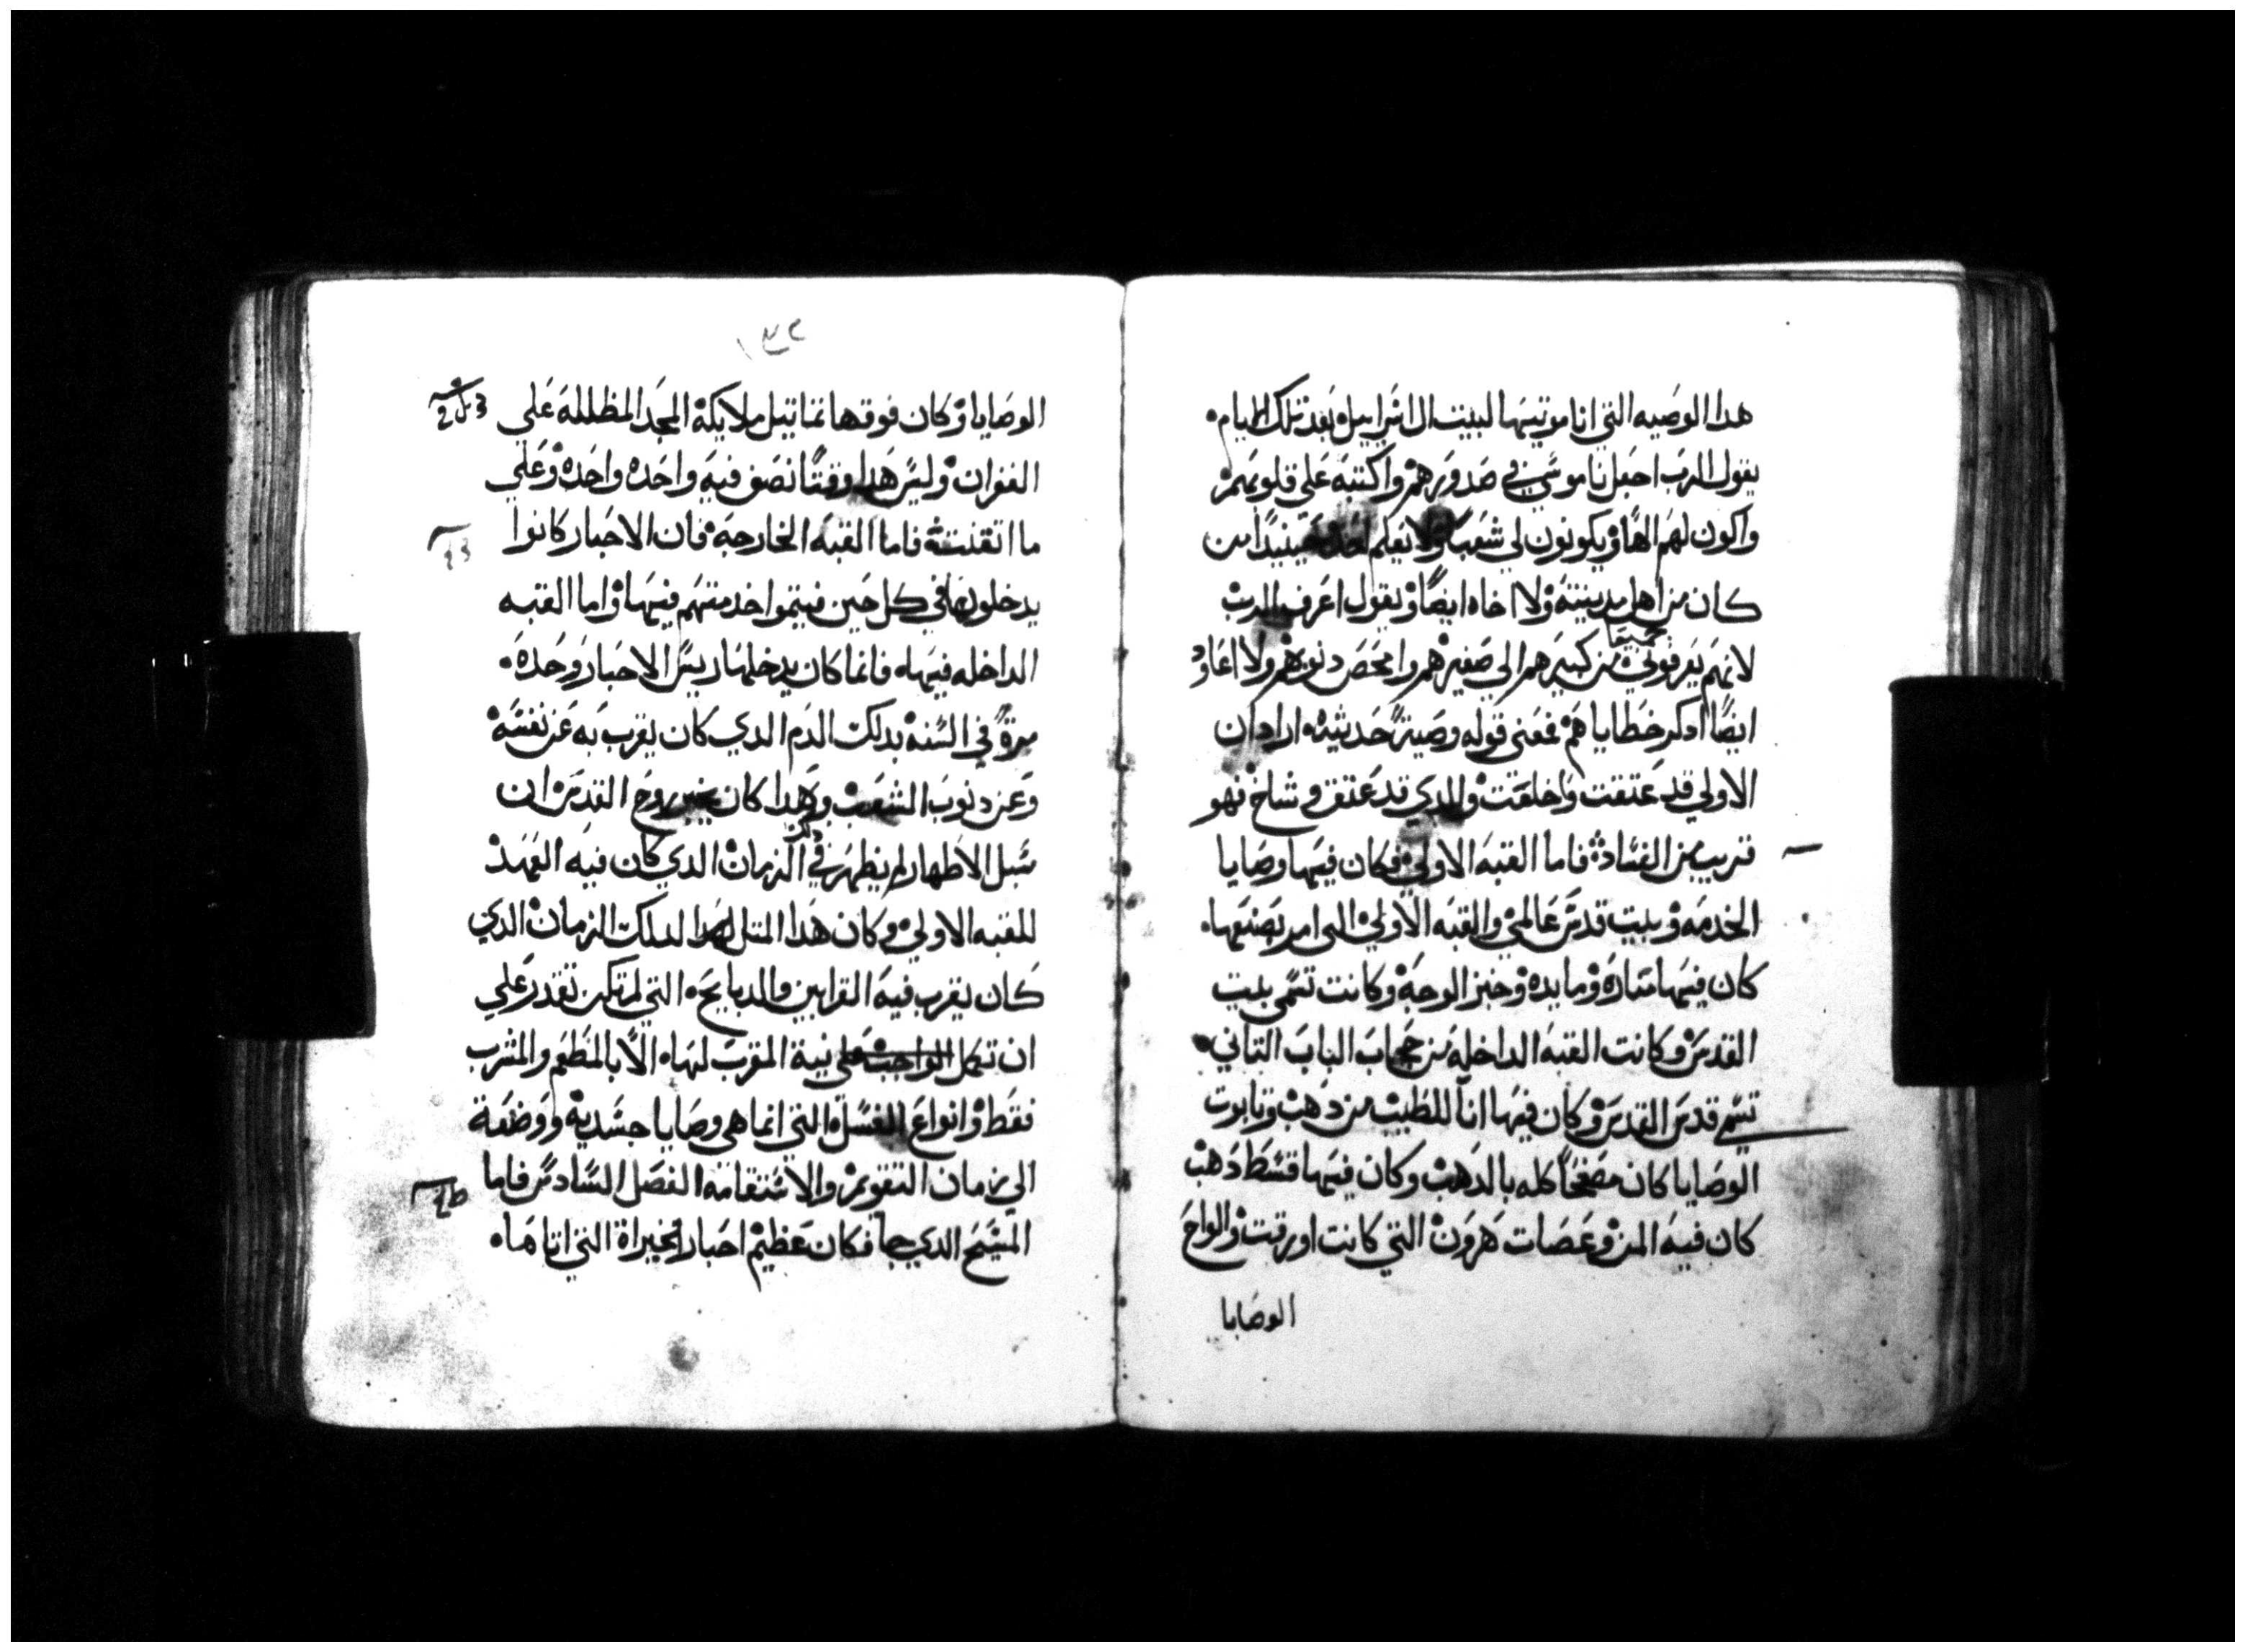 هدا الوصيه التي انا موتيها لبيت ال اسراييل بعد تلك الايام
يقول الرب اجعل ناموسي في صدورهم واكتبه علي قلوبهم
واكون لهم الهًا ويكونون لي شعبًا ولا يعلم احد حينيدًا من
كان من اهل مدينته ولا اخاه ايضًا ويقول اعرف الرب
لانهم يعرفوني جميعًا من كبيرهم الي صغيرهم وامحص دنوبهم ولا اعاود
ايضًا ادكر خطاياهم فمعني قوله وصيةً حديثه اراد ان
الاولي قد عتقت واخلقت والدي قد عتق وشاخ فهو
قريب من الفساد فاما القبه الاولي فكان فيها وصايا
الخدمه وبيت قدس عالمي والقبه الاولي التي امر بصنعها
كان فيها مناره ومايده وخبز الوجه وكانت تسمي بيت
القدس وكانت القبه الداخله من حجاب الباب التاني
تسمي قدس القدس وكان فيها اناً للطيب من دهب وتابوت
الوصايا كان مصفحًا كله بالدهب وكان فيها قسط دهب
كان فيه المن وعصات هرون التي كانت اورقت والواح
الوصايا
الوصايا وكان فوقها تماتيل ملايكة المجد المظلله علي
الغفران وليس هدا وقتًا نصف فيه واحده واحده وعلي
ما اتقنته فاما القبه الخارجه فان الاحبار كانوا
يدخلونها في كل حين فيتموا خدمتهم فيها واما القبه
الداخله فيها فانما كان يدخلها ريس الاحبار وحده
مرةً في السنه بدلك الدم الدي كان يقرب به عن نفسه
وعن دنوب الشعب وهدا كان يخبر روح القدس ان
سبل الاطهار لم يظهر في دلك الزمان الدي كان فيه العهد
للقبه الاولي وكان هدا المتل لدلك الزمان الدي
كان يقرب فيه القرابين والدبايح التي لم تكن تقدر علي
ان تكمل نية المقرب لها الا بالمطعم والمشرب
فقط وانواع الغسل التي انما هي وصايا جسديه ووضعة
الي زمان التقويم والاستقامه الفصل السادس فاما
المسيح الدي جا فكان عظيم احبار الخيراة التي اتاها